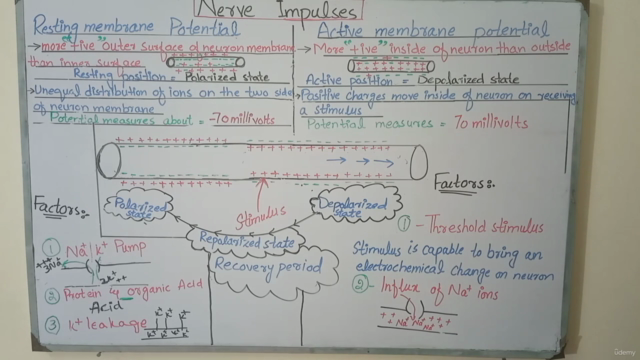 Nerve Impulses
Resting membrane Potential
→more "+ive" outer surface of neuron membrane
than inner surface
Resting position = Polarized state
→Unequal distribution of ions on the two side
of neuron membrane
Potential measures about = -70 millivolts
Active membrane potential
→More "+ive" inside of neuron than outside
Active position = Depolarized state
→Positive charges move inside of neuron on receiving
a stimulus
Potential measures = 70 millivolts
Polarized
state
Stimulus
Depolarized
state
Repolarized state
Recovery period
Factors:-
① Na⁺/K⁺ Pump
3Na⁺
② Protein & organic Acid
Acid
③ K⁺ leakage
K⁺ K⁺ K⁺ K⁺
Factors:-
① - Threshold stimulus
Stimulus is capable to bring an
electrochemical change on neuron
②- Influx of Na⁺ ions
Na⁺ Na⁺ Na⁺
Udemy